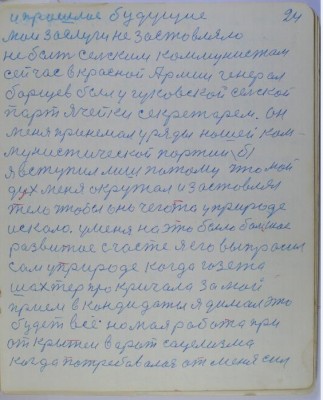 и прошлое будущие 24
мои заслуги не заставляло
не быть сельским коммунистом
сейчас в красной Армии генерал
борщев был у гуковской сельской
парт ячейки секретарем. он
меня принемал у ряды нашей ком-
мунистической партии (б)
я вступил лиш потому что мой
дух меня окружал и заставлял
тело чтобы оно чегото у природе
искало. уменя на это было большое
развитое счастє я его выпросил
сам у природе когда газета
шахтер про кричала за мой
прием в кандидаты я думал это
будет всё но моя работа при
открытем варот социлизма
когда потребавалась от меня сил